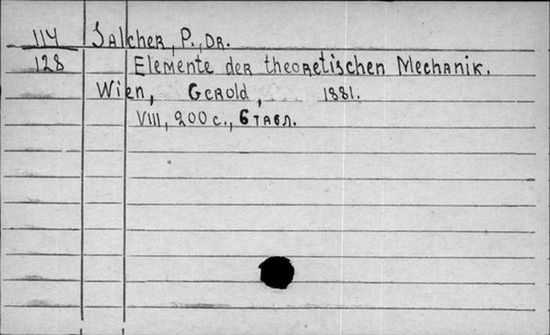 114 Salcher, P., Dr.
128 Elemente der theoretischen Mechanik.
Wien, Gerold, 1881.
VIII, 200 с., 6 табл.